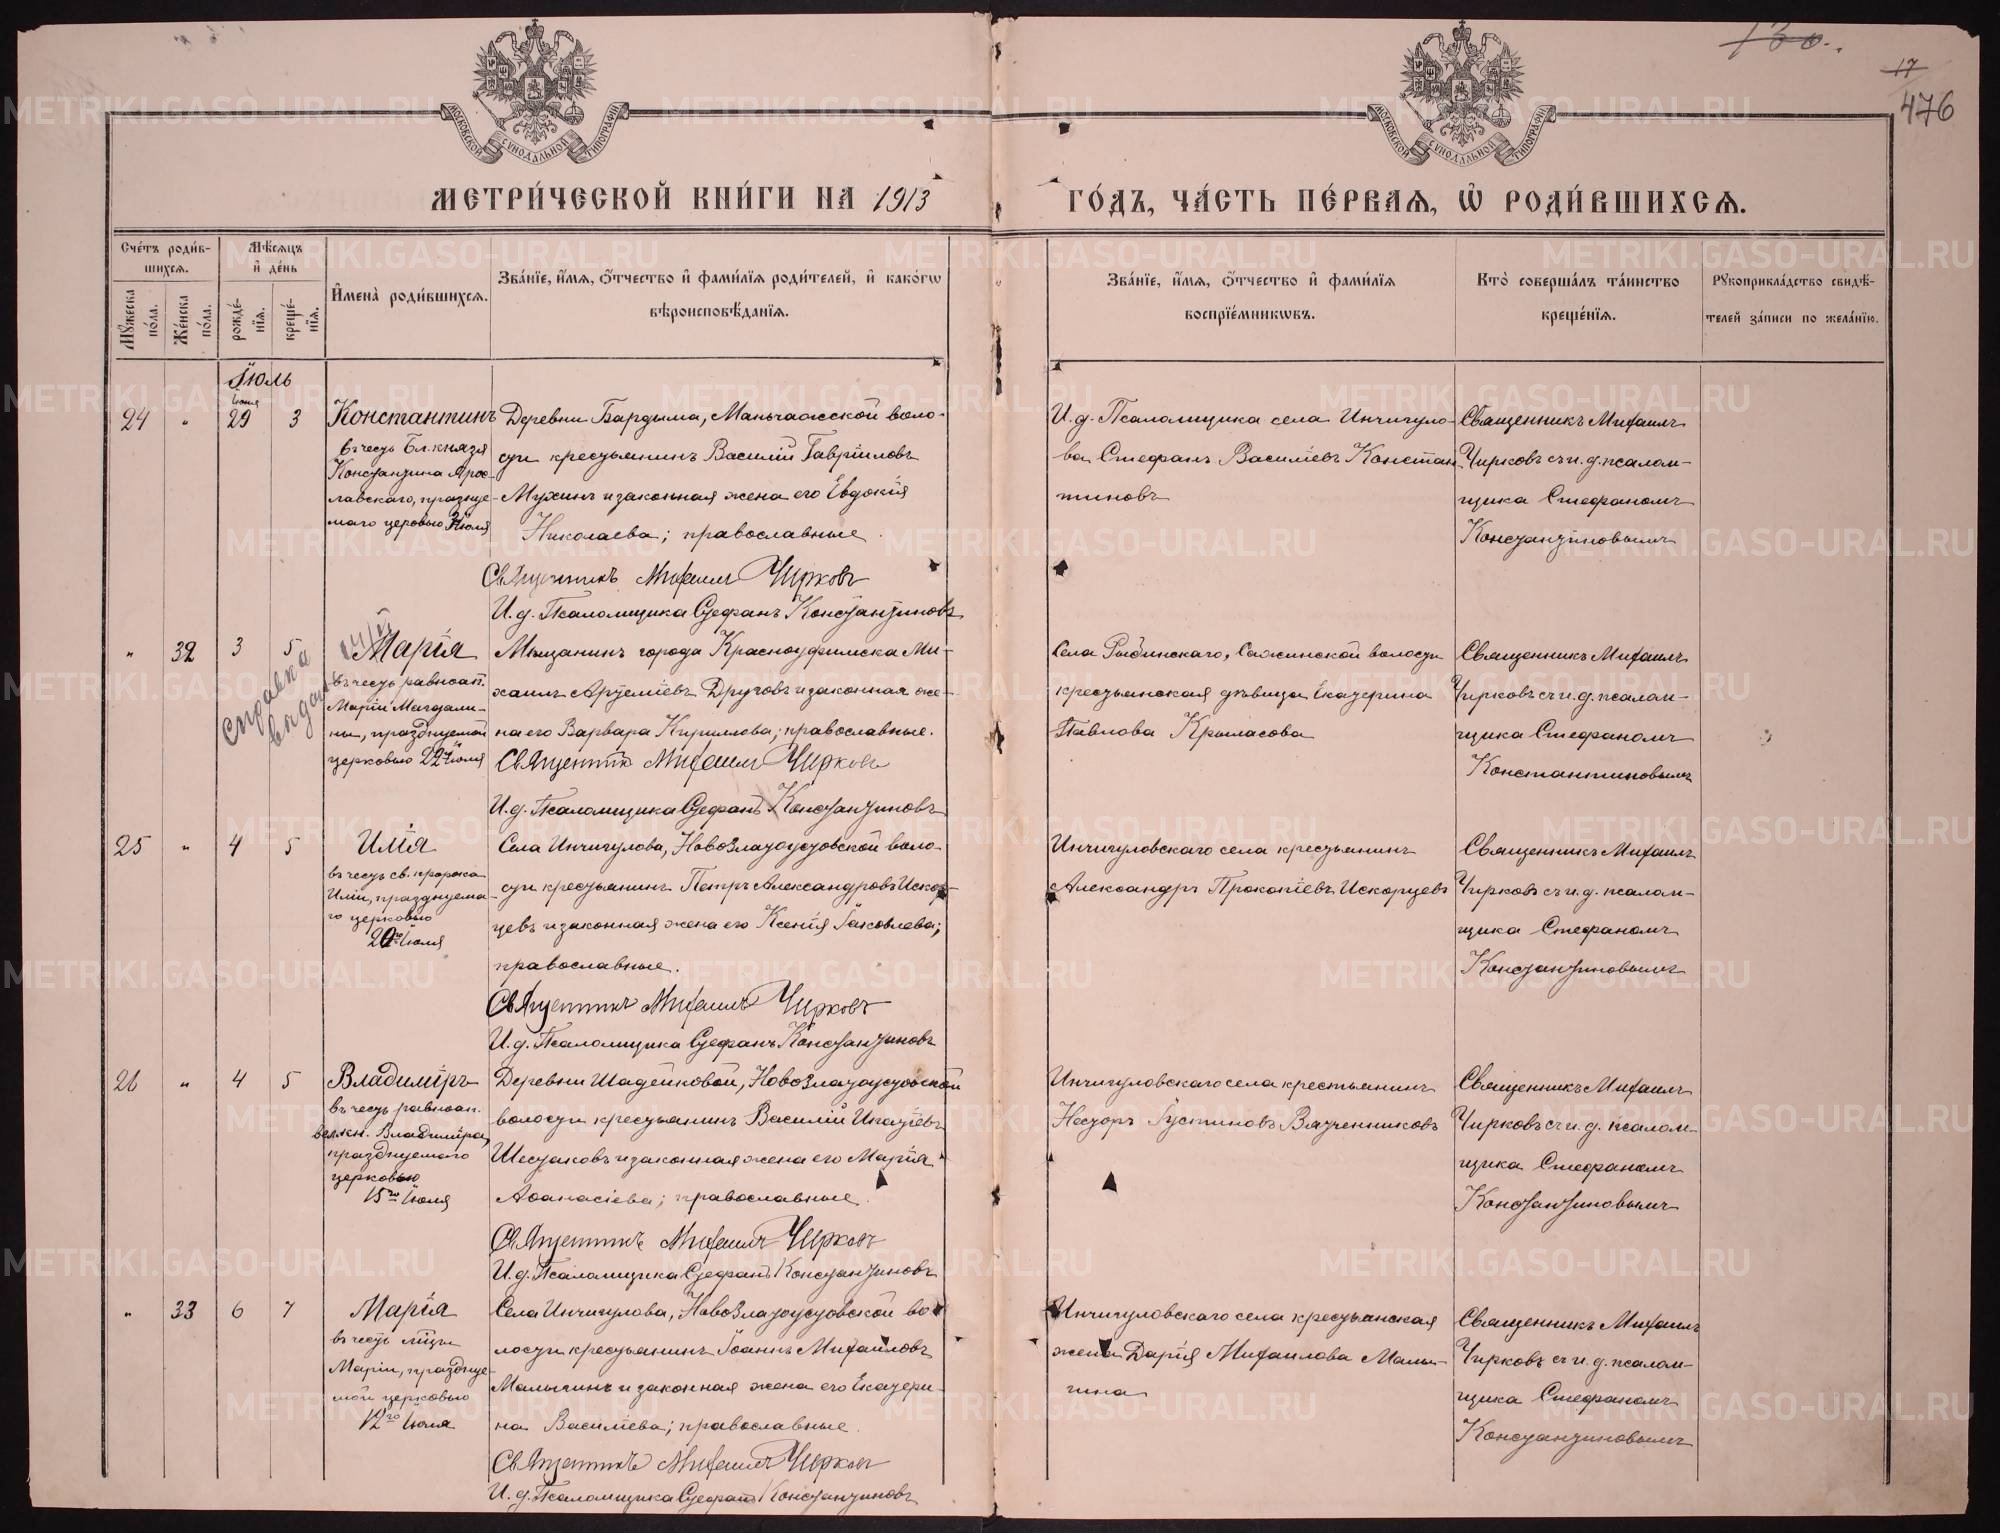 130.
17
476
МОСКОВСКОЙ СѴНОДАЛЬНОЙ ТИПОГРАФІИ
МОСКОВСКОЙ СѴНОДАЛЬНОЙ ТИПОГРАФІИ
МЕТРИ́ЧЕСКОЙ КНИ́ГИ НА 1913
ГО́ДЪ, ЧА́СТЬ ПЕ́РВАѦ, Ѡ҆ РОДИ́ВШИХСѦ.
Сче́тъ роди́в-
шихсѧ.
Мѣ́сѧцъ
и҆ де́нь
Мꙋ́жеска по́ла.
Же́нска по́ла.
рожде́-
нїѧ.
креще́-
нїѧ.
И҆мена̀ роди́вшихсѧ.
Зва́нїе, и҆́мѧ, ѻ҆́тчество и҆ фами́лїѧ роди́телей, и҆ како́гѡ
вѣроисповѣ́данїѧ.
Зва́нїе, и҆́мѧ, ѻ҆́тчество и҆ фами́лїѧ
воспрїе́мникѡвъ.
Кто̀ соверша́лъ та́инство
креще́нїѧ.
Рꙋкоприкла́дство свидѣ́-
телей за́писи по жела́нїю.
Іюль
24 " Іюня 29 3
Константинъ
въ честь Бл. князя
Константина Яро-
славскаго, праздуе-
маго церковью 3 Іюля
Деревни Бардыма, Маньчажской воло-
сти крестьянинъ Василій Гавріиловъ
Мухинъ и законная жена его Евдокія
Николаева; православные.
Священникъ Михаилъ Чирковъ
И. д. Псаломщика Стефанъ Константиновъ
И. д. Псаломщика села Инчигуло-
ва Стефанъ Василіевъ Констан-
тиновъ
Священникъ Михаилъ
Чирковъ съ и. д. псалом-
щика Стефаномъ
Константиновымъ
" 32 3 5
Справка
выдана
Марія
въ честь равноап.
Маріи Магдали-
ны, празднуемой
церковью 22 Іюля
Мѣщанинъ города Красноуфимска Ми-
хаилъ Артеміевъ Друговъ и законная же-
на его Варвара Кириллова; православные.
Священникъ Михаилъ Чирковъ
И. д. Псаломщика Стефанъ Константиновъ
Села Рыбинскаго, Сажинской волости
крестьянская дѣвица Екатерина
Павлова Крыласова
Священникъ Михаилъ
Чирковъ съ и. д. псалом-
щика Стефаномъ
Константиновымъ
25 " 4 5
Илія
въ честь св. пророка
Иліи, празднуема-
го церковью
20го Іюля
Села Инчигулова, НовоЗлатоустовской воло-
сти крестьянинъ Петръ Александровъ Искор-
цевъ и законная жена его Ксенія Іаковлева;
православные.
Священникъ Михаилъ Чирковъ
И. д. Псаломщика Стефанъ Константиновъ
Инчигуловскаго села крестьянинъ
Александръ Прокопіевъ Искорцевъ
Священникъ Михаилъ
Чирковъ съ и. д. псалом-
щика Стефаномъ
Константиновымъ
26 " 4 5
Владиміръ
въ честь равноап.
вел. кн. Владиміра,
празднуемаго
церковью
15го Іюля
Деревни Шадейковой, НовоЗлатоустовской
волости крестьянинъ Василій Ипатіевъ
Шестаковъ и законная жена его Марія
Аѳанасіева; православные.
Священникъ Михаилъ Чирковъ
И. д. Псаломщика Стефанъ Константиновъ
Инчигуловскаго села крестьянинъ
Несторъ Іустиновъ Вяткенниковъ
Священникъ Михаилъ
Чирковъ съ и. д. псалом-
щика Стефаномъ
Константиновымъ
" 33 6 7
Марія
въ честь мцы
Маріи, праздуе-
мой церковью
12го Іюля
Села Инчигулова, НовоЗлатоустовской во-
лости крестьянинъ Іоаннъ Михаиловъ
Малыгинъ и законная жена его Екатери-
на Василіева; православные.
Священникъ Михаилъ Чирковъ
И. д. Псаломщика Стефанъ Константиновъ
Инчигуловскаго села крестьянская
жена Дарія Михаилова Малы-
гина
Священникъ Михаилъ
Чирковъ съ и. д. псалом-
щика Стефаномъ
Константиновымъ
METRIKI.GASO-URAL.RU